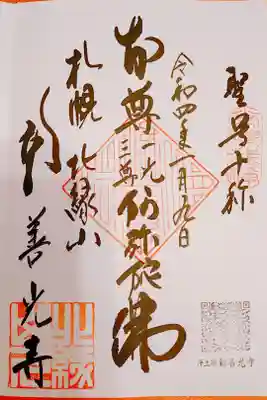 聖号十称
令和四年一月九日
本尊一光三尊阿弥陀佛
札幌北縁山
新善光寺
浄土宗新善光寺